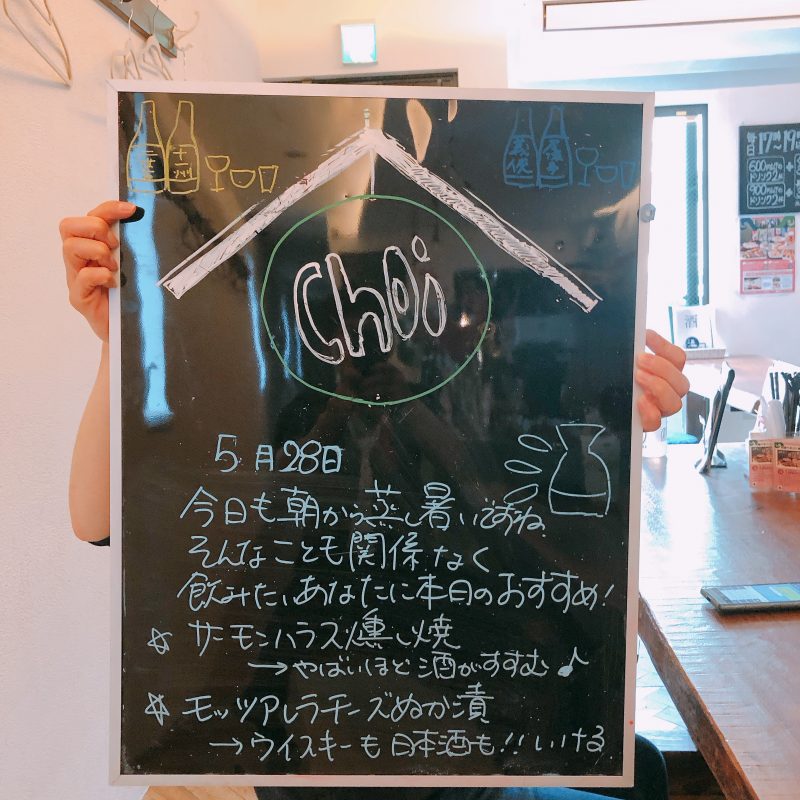 Choi
5月28日
今日も朝から蒸し暑いですね
そんなことも関係なく
飲みたいあなたに本日のおすすめ!
☆ サーモンハラス燻し焼
→やばいほど酒がすすむ♪
☆ モッツアレラチーズぬか漬
→ウイスキーも日本酒も!!いける
十二州
毎日17時~19
600
ドリンク2杯
900
ドリンク2杯
酒